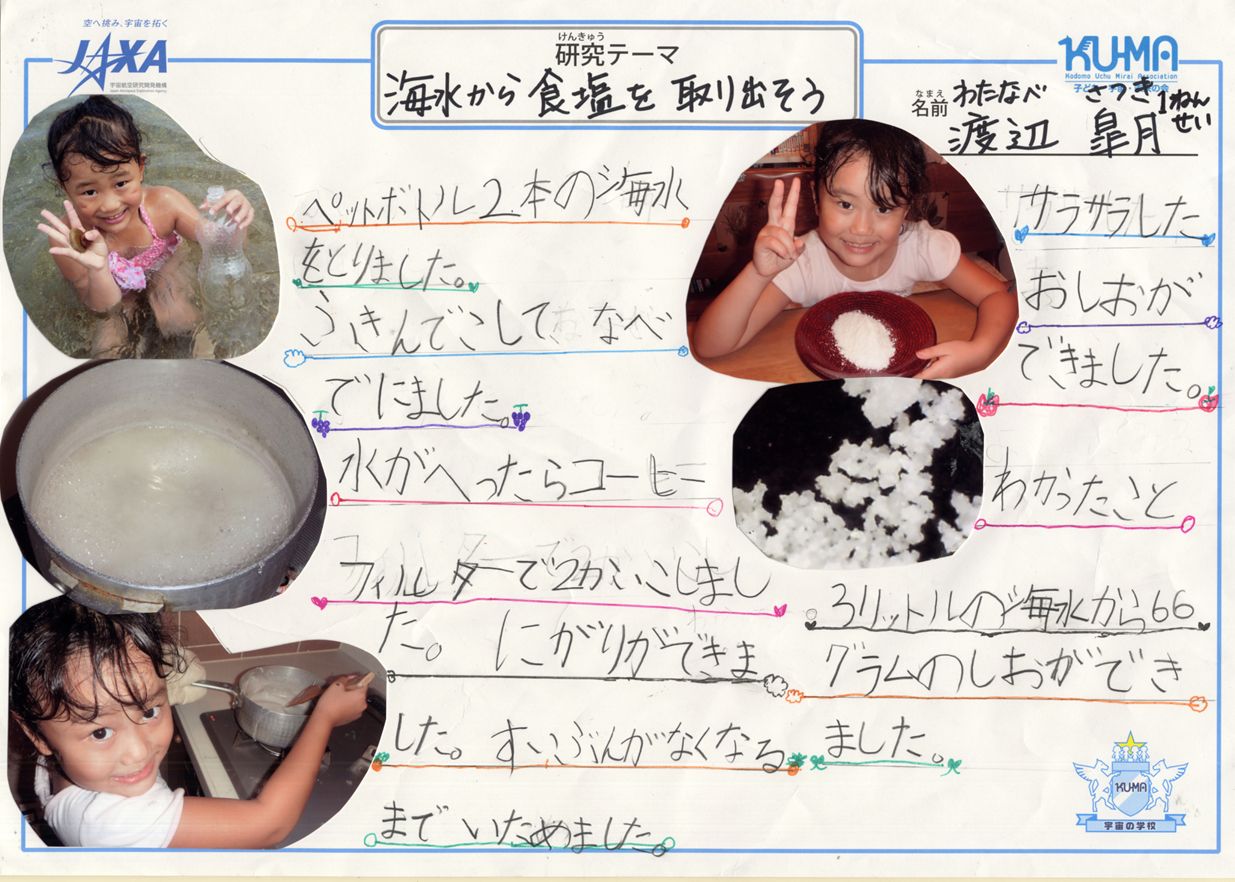 空へ挑み、宇宙を拓く
JAXA
宇宙航空研究開発機構
Japan Aerospace Exploration Agency
けんきゅう
研究テーマ
海水から食塩を取り出そう
KU-MA
Kodomo Uchu Mirai Association
なまえ
名前
わたなべ さつき 1ねんせい
渡辺 皐月
ペットボトル2本の海水
をとりました。
ふきんでこして なべ
でにました。
水がへったらコーヒー
フィルターで2かいこしまし
た。 にがりができま
した。 すいぶんがなくなる
まで いためました。
サラサラした
おしおが
できました。
わかったこと
3リットルの海水から66
グラムのしおができ
ました。
KU-MA
宇宙の学校